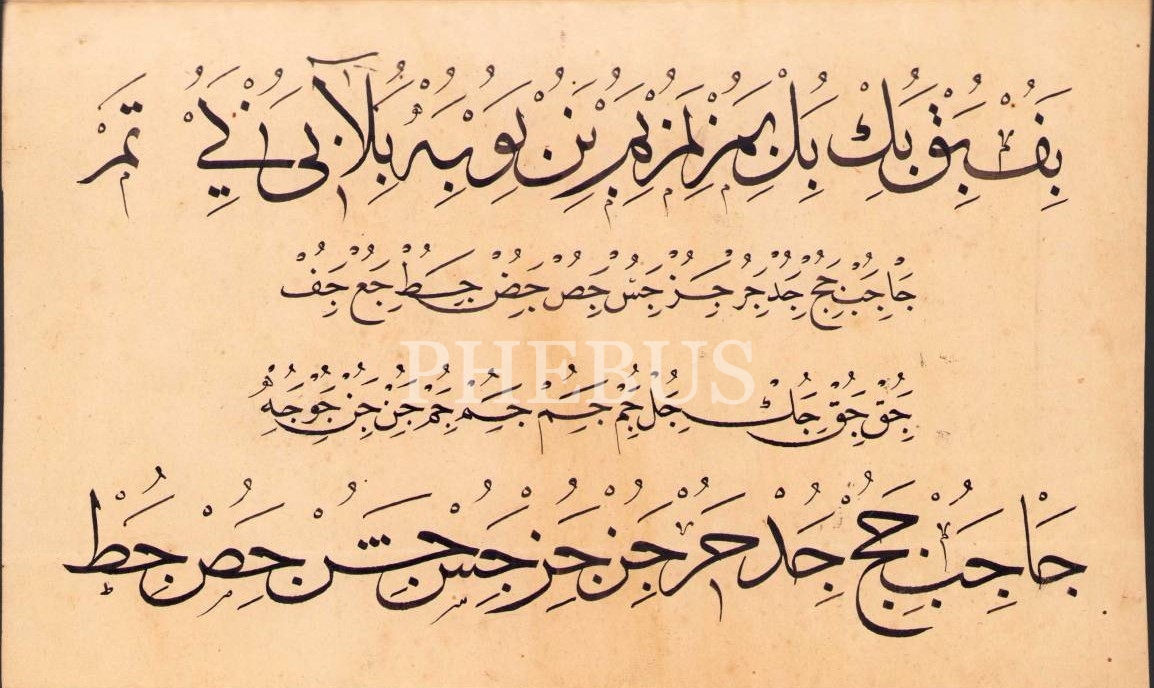 بف بق بك بل بم بم بم بن بو به بلا بى بي تم
جا جب جج جد جر جز جس جص جض جط جع جف
PHEBUS
جق جق جك جل جم جم جم جم جن جن جو جه
جا جب جج جد جر جز جس جش جص جط